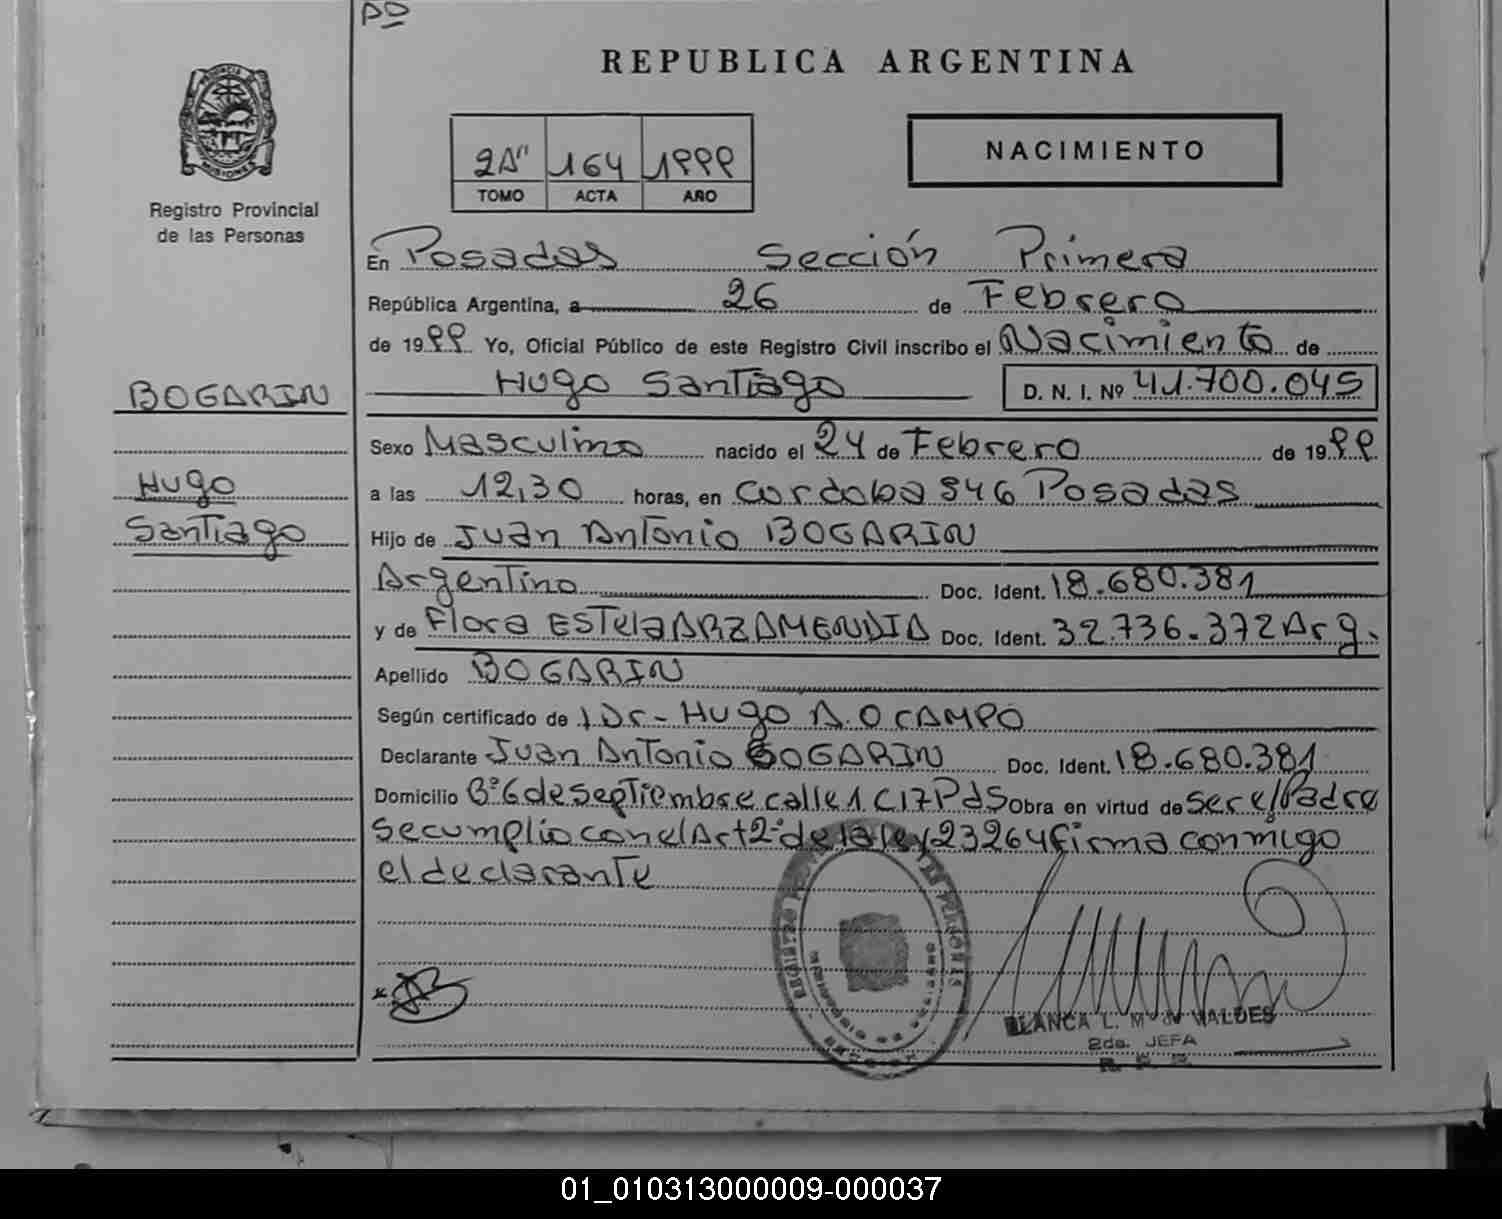 PD
REPUBLICA ARGENTINA
2A" 164 1999
TOMO ACTA AÑO
NACIMIENTO
Registro Provincial
de las Personas
En Posadas Sección Primera
República Argentina, a 26 de Febrero
de 1999 Yo, Oficial Público de este Registro Civil inscribo el Nacimiento de
Hugo Santiago D. N. I. Nº 41.700.045
BOGARIN
Hugo
Santiago
Sexo Masculino nacido el 24 de Febrero de 1999
a las 12,30 horas, en Cordoba 846 Posadas
Hijo de Juan Antonio BOGARIN
Argentino Doc. Ident. 18.680.381
y de Flora Estela ARZAMENDIA Doc. Ident. 32.736.372 Arg.
Apellido BOGARIN
Según certificado de Dr- Hugo A. OCAMPO
Declarante Juan Antonio BOGARIN Doc. Ident. 18.680.381
Domicilio Bº 6 de Septiembre calle 1 C17 Pds Obra en virtud de ser el Padre
se cumplio con el Art 2º de la ley 23264 firma conmigo
el declarante
BLANCA L. M. de VALDES
2da. JEFA
01_010313000009-000037